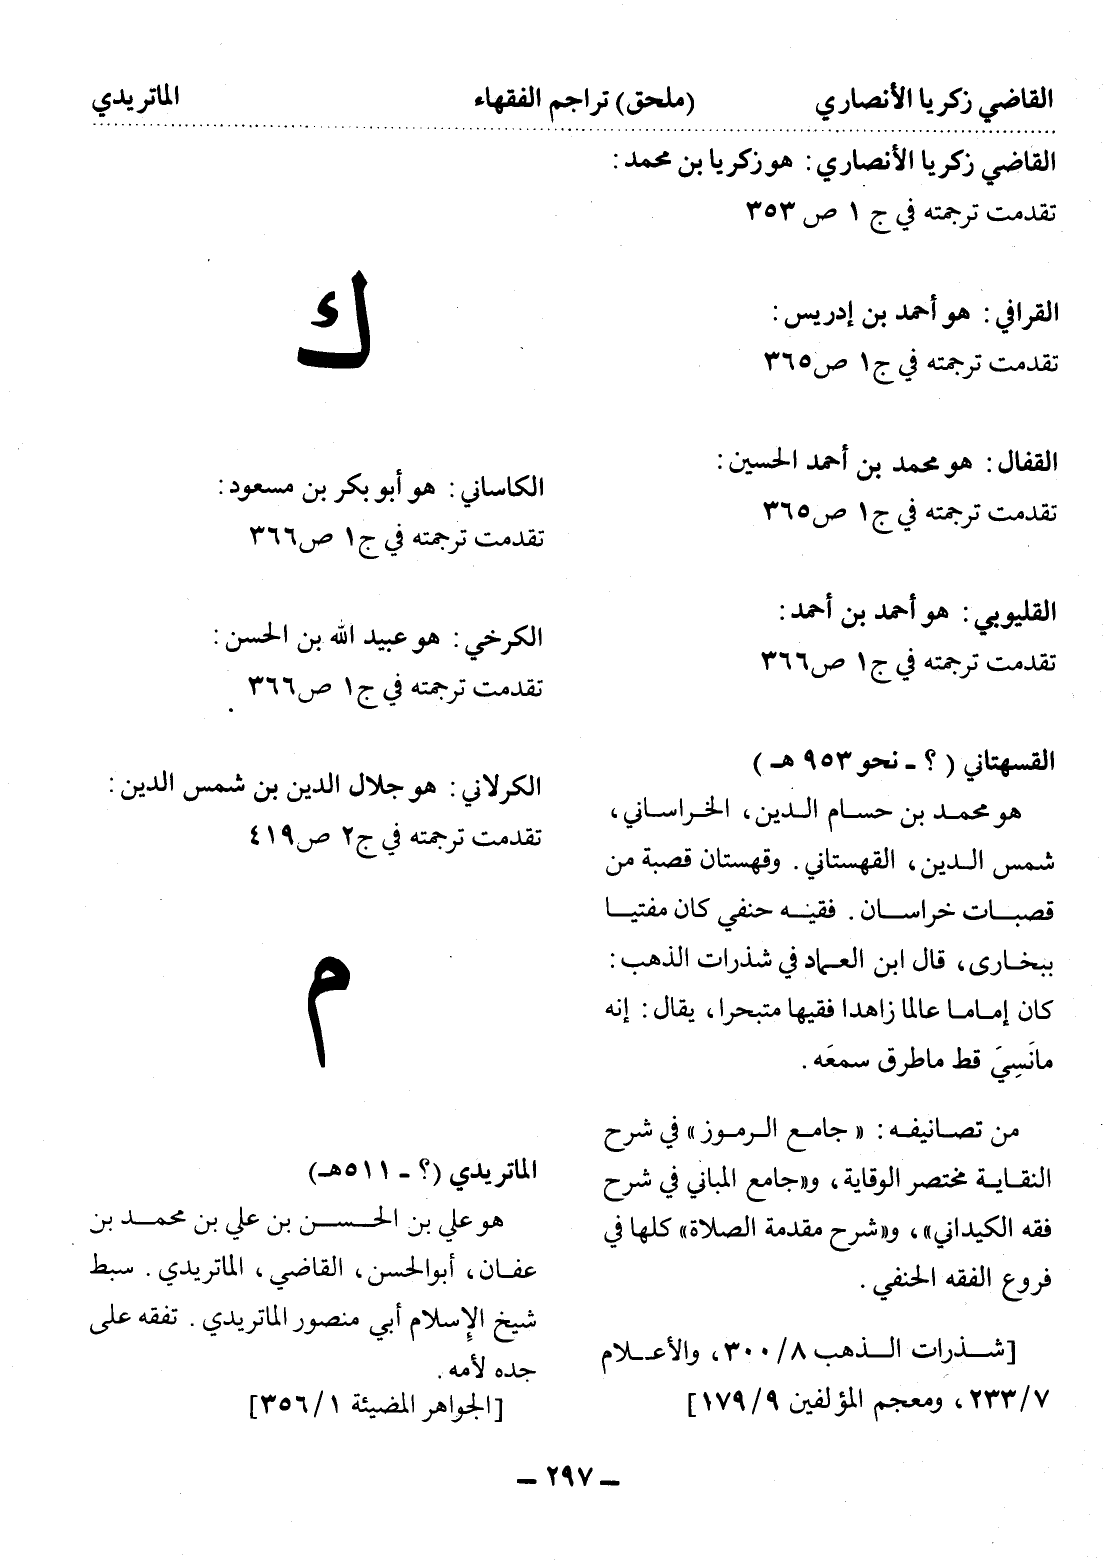 القاضي زكريا الأنصاري (ملحق) تراجم الفقهاء الماتريدي
القاضي زكريا الأنصاري : هو زكريا بن محمد :
تقدمت ترجمته في ج ١ ص ٣٥٣
القرافي : هو أحمد بن إدريس :
تقدمت ترجمته في ج١ ص٣٦٥
القفال : هو محمد بن أحمد الحسين :
تقدمت ترجمته في ج١ ص٣٦٥
القليوبي : هو أحمد بن أحمد :
تقدمت ترجمته في ج١ ص٣٦٦
القسهتاني ( ؟ ـ نحو ٩٥٣ هـ )
هو محمد بن حسام الدين ، الخراساني ،
شمس الدين ، القهستاني . وقهستان قصبة من
قصبات خراسان . فقيه حنفي كان مفتيا
ببخارى ، قال ابن العماد في شذرات الذهب :
كان إماما عالما زاهدا فقيها متبحرا ، يقال : إنه
مانَسِيَ قط ماطرق سمعَه .
من تصانيفه : « جامع الرموز » في شرح
النقاية مختصر الوقاية ، و«جامع المباني في شرح
فقه الكيداني» ، و«شرح مقدمة الصلاة» كلها في
فروع الفقه الحنفي .
[شذرات الذهب ٨/ ٣٠٠ ، والأعلام
٧/ ٢٣٣ ، ومعجم المؤلفين ٩/ ١٧٩]
ك
الكاساني : هو أبو بكر بن مسعود :
تقدمت ترجمته في ج١ ص٣٦٦
الكرخي : هو عبيد الله بن الحسن :
تقدمت ترجمته في ج١ ص٣٦٦
الكرلاني : هو جلال الدين بن شمس الدين :
تقدمت ترجمته في ج٢ ص٤١٩
م
الماتريدي (؟ ـ ٥١١هـ)
هو علي بن الحسن بن علي بن محمد بن
عفان ، أبوالحسن ، القاضي ، الماتريدي . سبط
شيخ الإسلام أبي منصور الماتريدي . تفقه على
جده لأمه .
[الجواهر المضيئة ١/ ٣٥٦]
ـ ٢٩٧ ـ